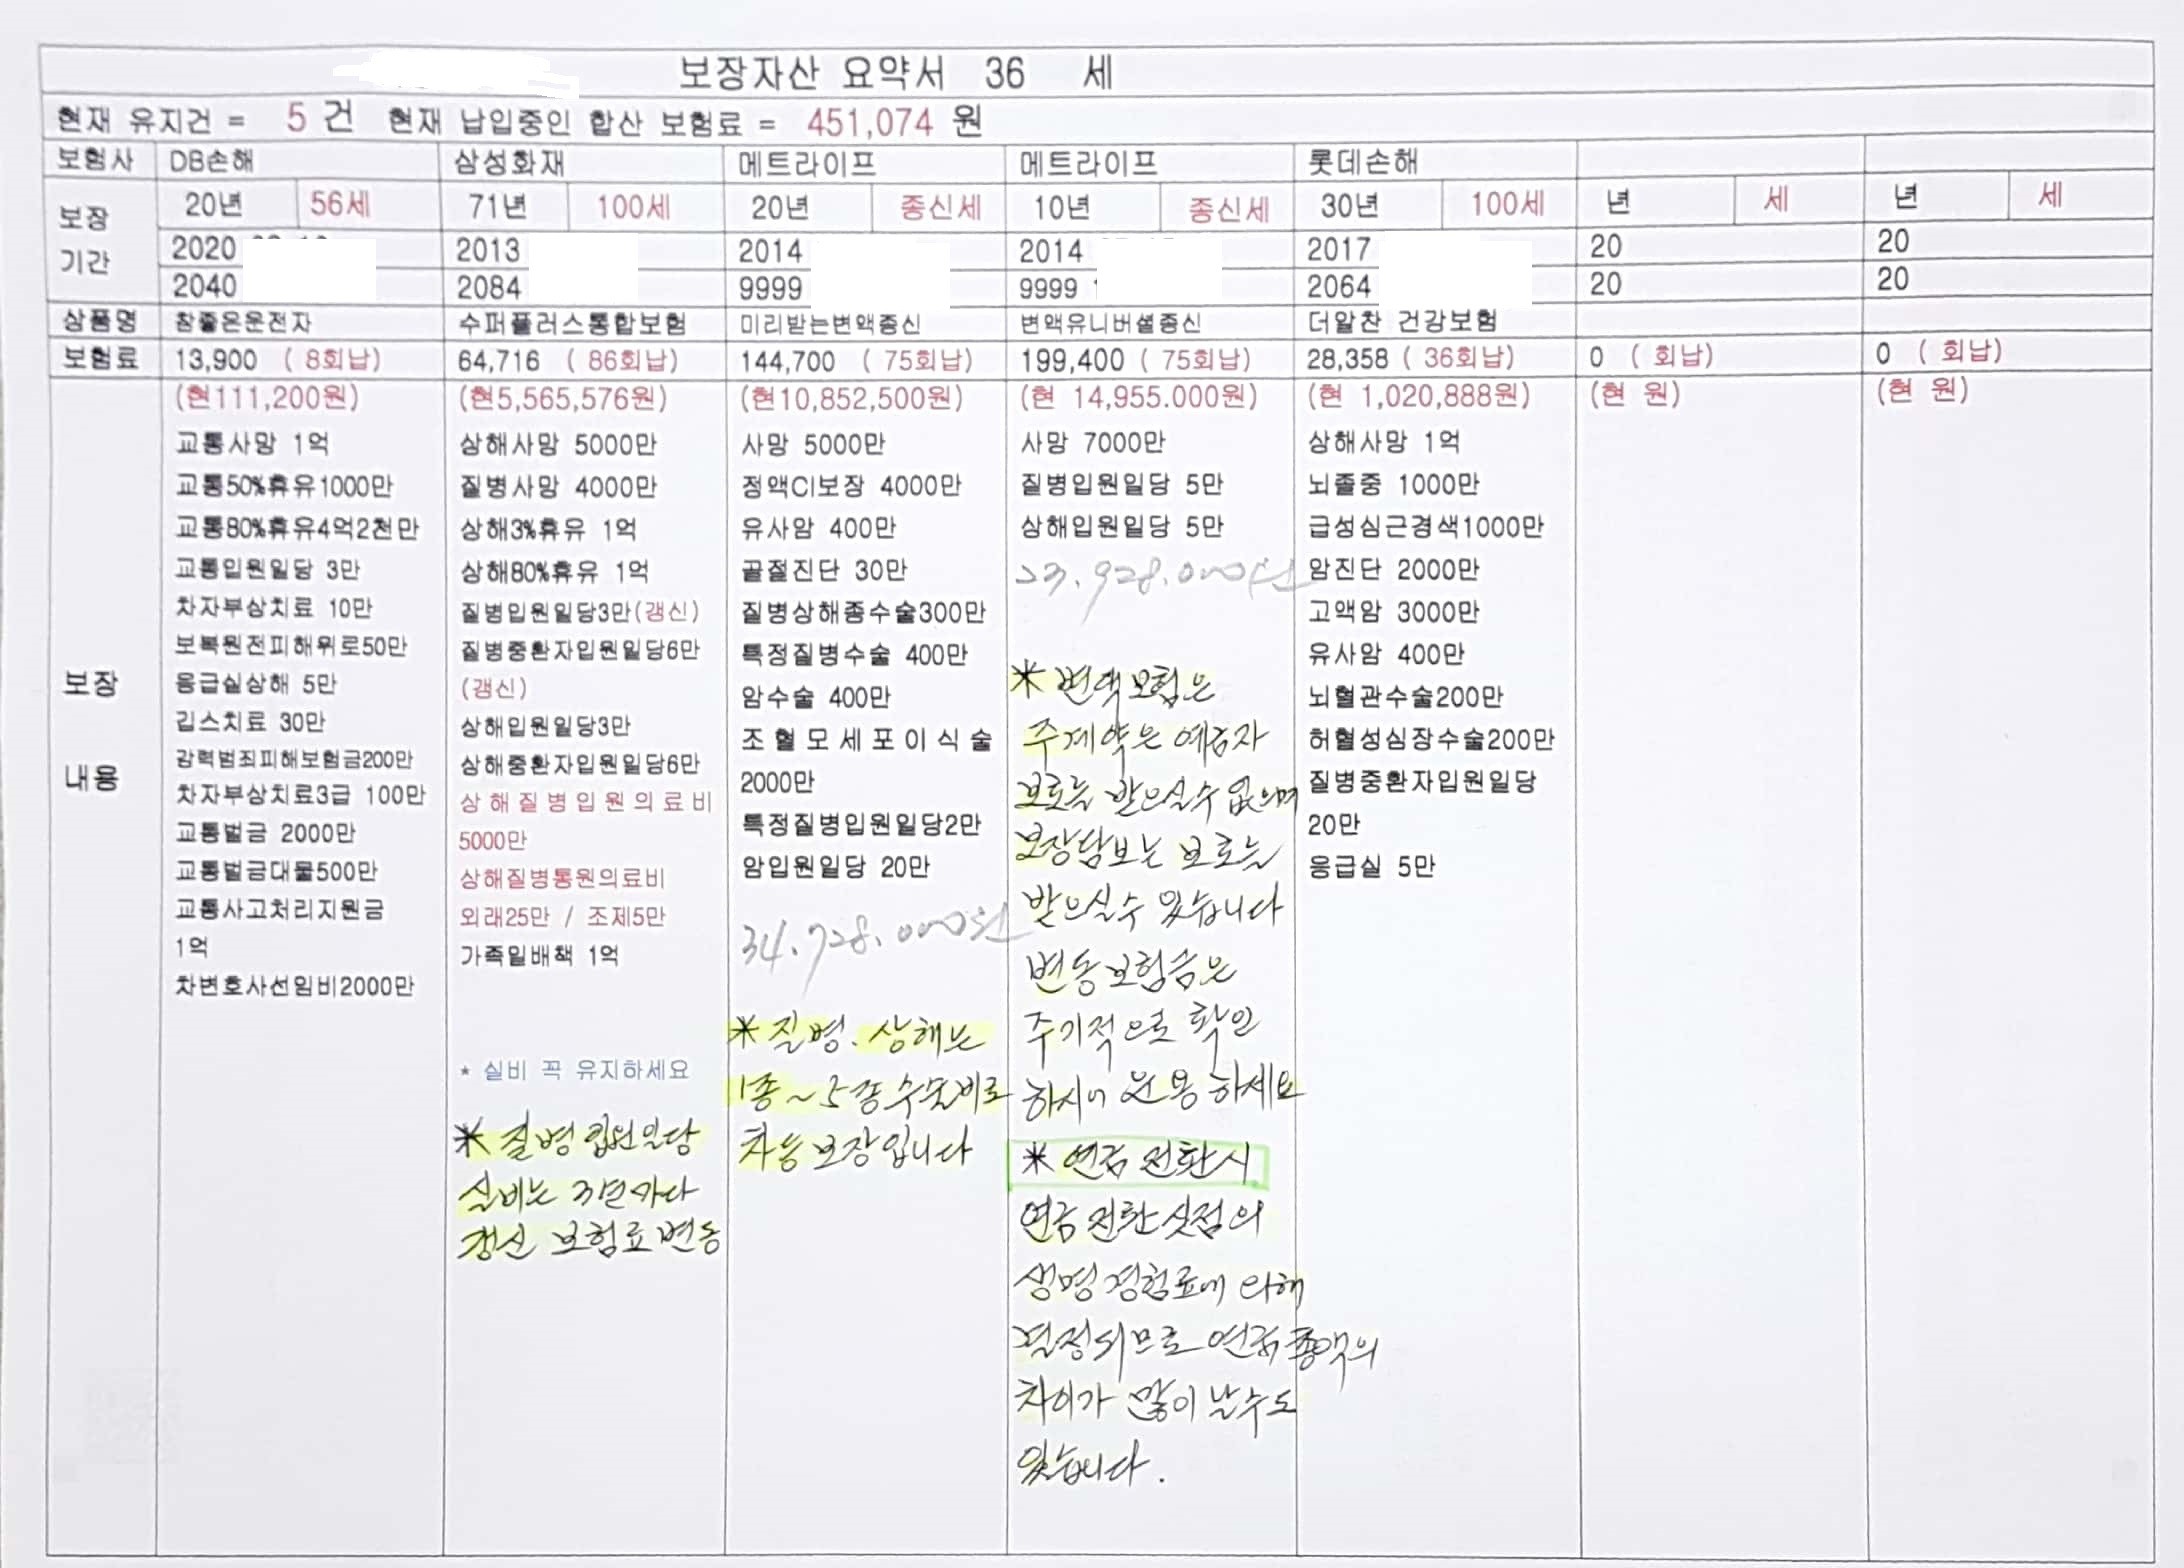 보장자산 요약서 36 세
현재 유지건 = 5 건 현재 납입중인 합산 보험료 = 451,074 원
보험사 DB손해 삼성화재 메트라이프 메트라이프 롯데손해
보장 기간
20년 56세 71년 100세 20년 종신세 10년 종신세 30년 100세 년 세 년 세
2020 2013 2014 2014 2017 20 20
2040 2084 9999 9999 2064 20 20
상품명 참좋은운전자 수퍼플러스통합보험 미리받는변액종신 변액유니버셜종신 더알찬 건강보험
보험료 13,900 ( 8회납) 64,716 ( 86회납) 144,700 ( 75회납) 199,400 ( 75회납) 28,358 ( 36회납) 0 ( 회납) 0 ( 회납)
(현111,200원) (현5,565,576원) (현10,852,500원) (현 14,955.000원) (현 1,020,888원) (현 원) (현 원)
보장
내용
교통사망 1억
교통50%휴유1000만
교통80%휴유4억2천만
교통입원일당 3만
차자부상치료 10만
보복원전피해위로50만
응급실상해 5만
깁스치료 30만
강력범죄피해보험금200만
차자부상치료3급 100만
교통벌금 2000만
교통벌금대물500만
교통사고처리지원금
1억
차변호사선임비2000만
상해사망 5000만
질병사망 4000만
상해3%휴유 1억
상해80%휴유 1억
질병입원일당3만(갱신)
질병중환자입원일당6만
(갱신)
상해입원일당3만
상해중환자입원일당6만
상해질병입원의료비
5000만
상해질병통원의료비
외래25만 / 조제5만
가족일배책 1억
* 실비 꼭 유지하세요
* 질병입원일당
실비는 3년마다
갱신 보험료 변동
사망 5000만
정액CI보장 4000만
유사암 400만
골절진단 30만
질병상해종수술300만
특정질병수술 400만
암수술 400만
조혈모세포이식술
2000만
특정질병입원일당2만
암입원일당 20만
34.728.000원
* 질병.상해는
1종~5종수술비로
차등 보장입니다
사망 7000만
질병입원일당 5만
상해입원일당 5만
23.928.000원
* 변액보험은
주계약은 예금자
보호를 받으실수 없으며
보장담보는 보호를
받으실수 있습니다
변동보험금은
주기적으로 확인
하시어 운용하세요
* 연금 전환시
연금 전환 싯점의
생명경험료에 의해
결정되므로 연금총액의
차이가 많이 날수도
있습니다.
상해사망 1억
뇌졸중 1000만
급성심근경색1000만
암진단 2000만
고액암 3000만
유사암 400만
뇌혈관수술200만
허혈성심장수술200만
질병중환자입원일당
20만
응급실 5만